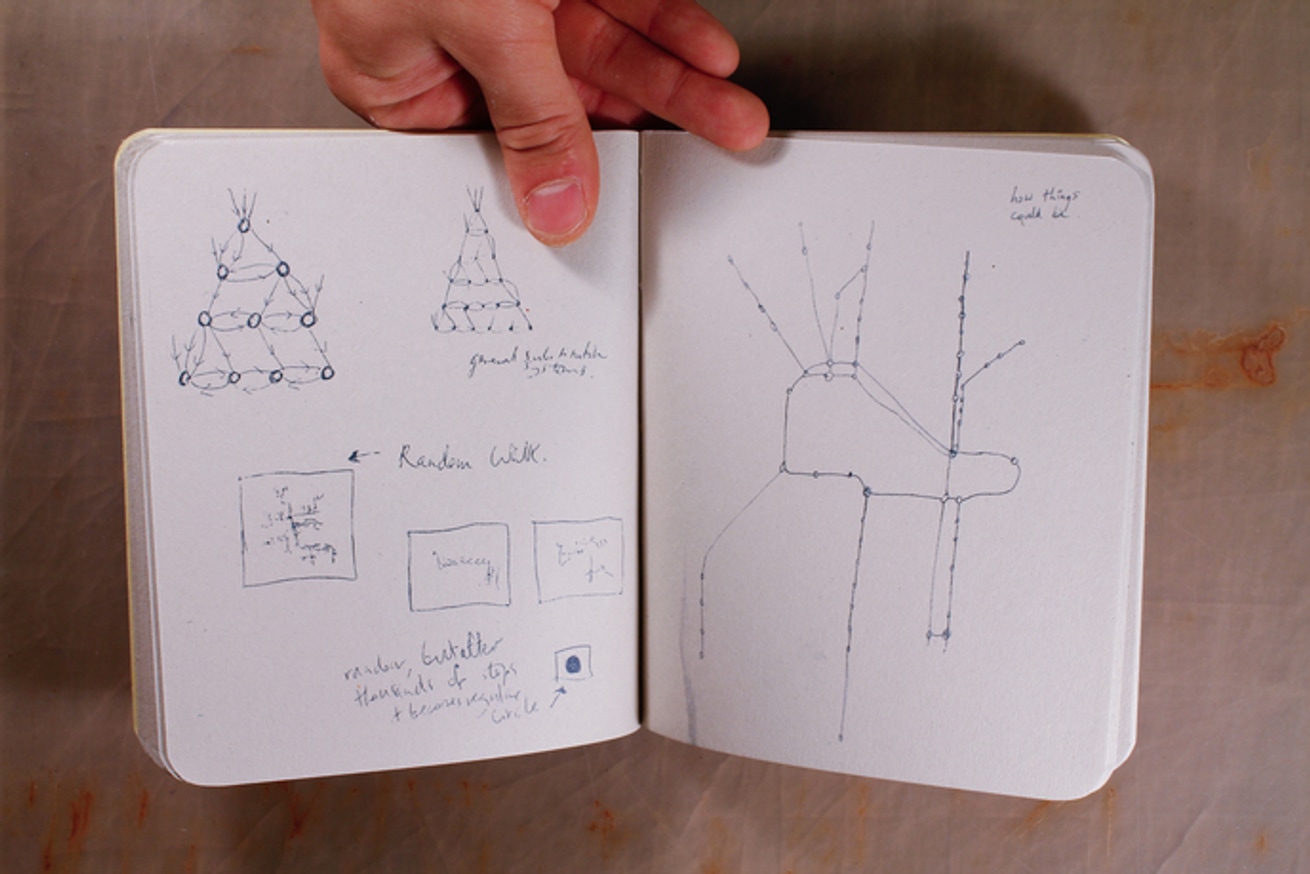 general
systems.
Random Walk.
random, but after
thousands of steps
it becomes regular
circle
how things
could be.